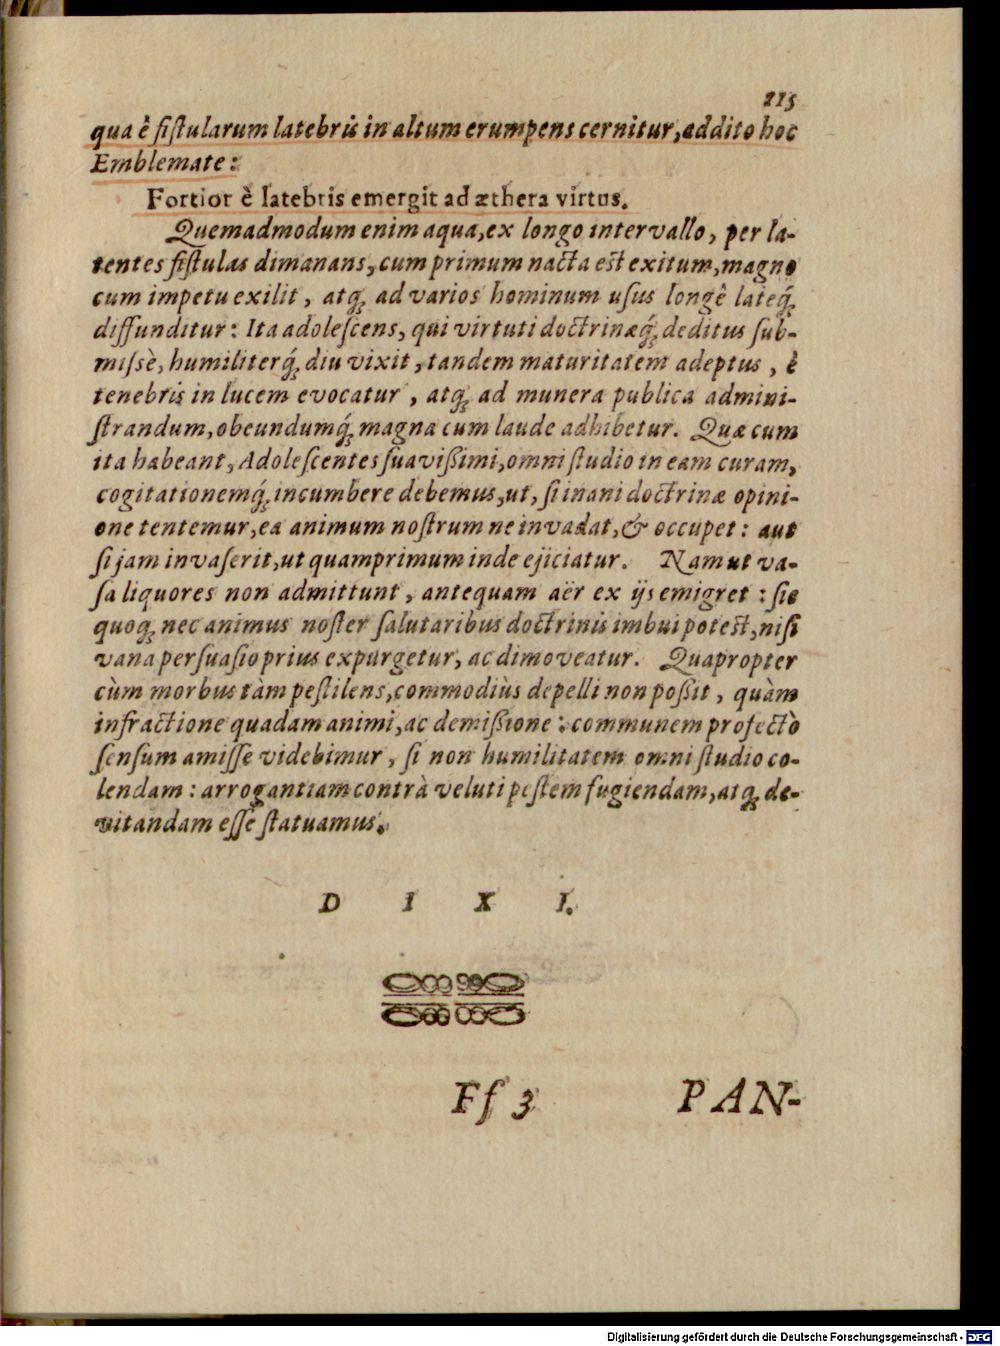 215
qua è fiſtularum latebris in altum erumpens cernitur, addito hoc
Emblemate:
Fortior è latebris emergit ad æthera virtus.
Quemadmodum enim aqua, ex longo intervallo, per la-
tentes fiſtulas dimanans, cum primum nacta est exitum, magno
cum impetu exilit, atq; ad varios hominum uſus longè lateq́;
diffunditur: Ita adoleſcens, qui virtuti doctrinæq́; deditus ſub-
miſsè, humiliterq́; diu vixit, tandem maturitatem adeptus, è
tenebris in lucem evocatur, atq; ad munera publica admini-
ſtrandum, obeundumq́; magna cum laude adhibetur. Quæ cum
ita habeant, Adoleſcentes ſuavißimi, omni ſtudio in eam curam,
cogitationemq́; incumbere debemus, ut, ſi inani doctrinæ opini-
one tentemur, ea animum noſtrum ne invadat, & occupet: aut
ſi jam invaſerit, ut quamprimum inde ejiciatur. Nam ut va-
ſa liquores non admittunt, antequam aër ex ijs emigret: ſic
quoq; nec animus noſter ſalutaribus doctrinis imbui potest, niſi
vana perſuaſio prius expurgetur, ac dimoveatur. Quapropter
cùm morbus tàm peſtilens, commodiùs depelli non poßit, quàm
infractione quadam animi, ac demißione: communem profectò
ſenſum amiſſe videbimur, ſi non humilitatem omni ſtudio co-
lendam: arrogantiam contrà veluti peſtem fugiendam, atq; de-
vitandam eſſe ſtatuamus.
D I X I.
Ff 3 PAN-
Digitalisierung gefördert durch die Deutsche Forschungsgemeinschaft - DFG